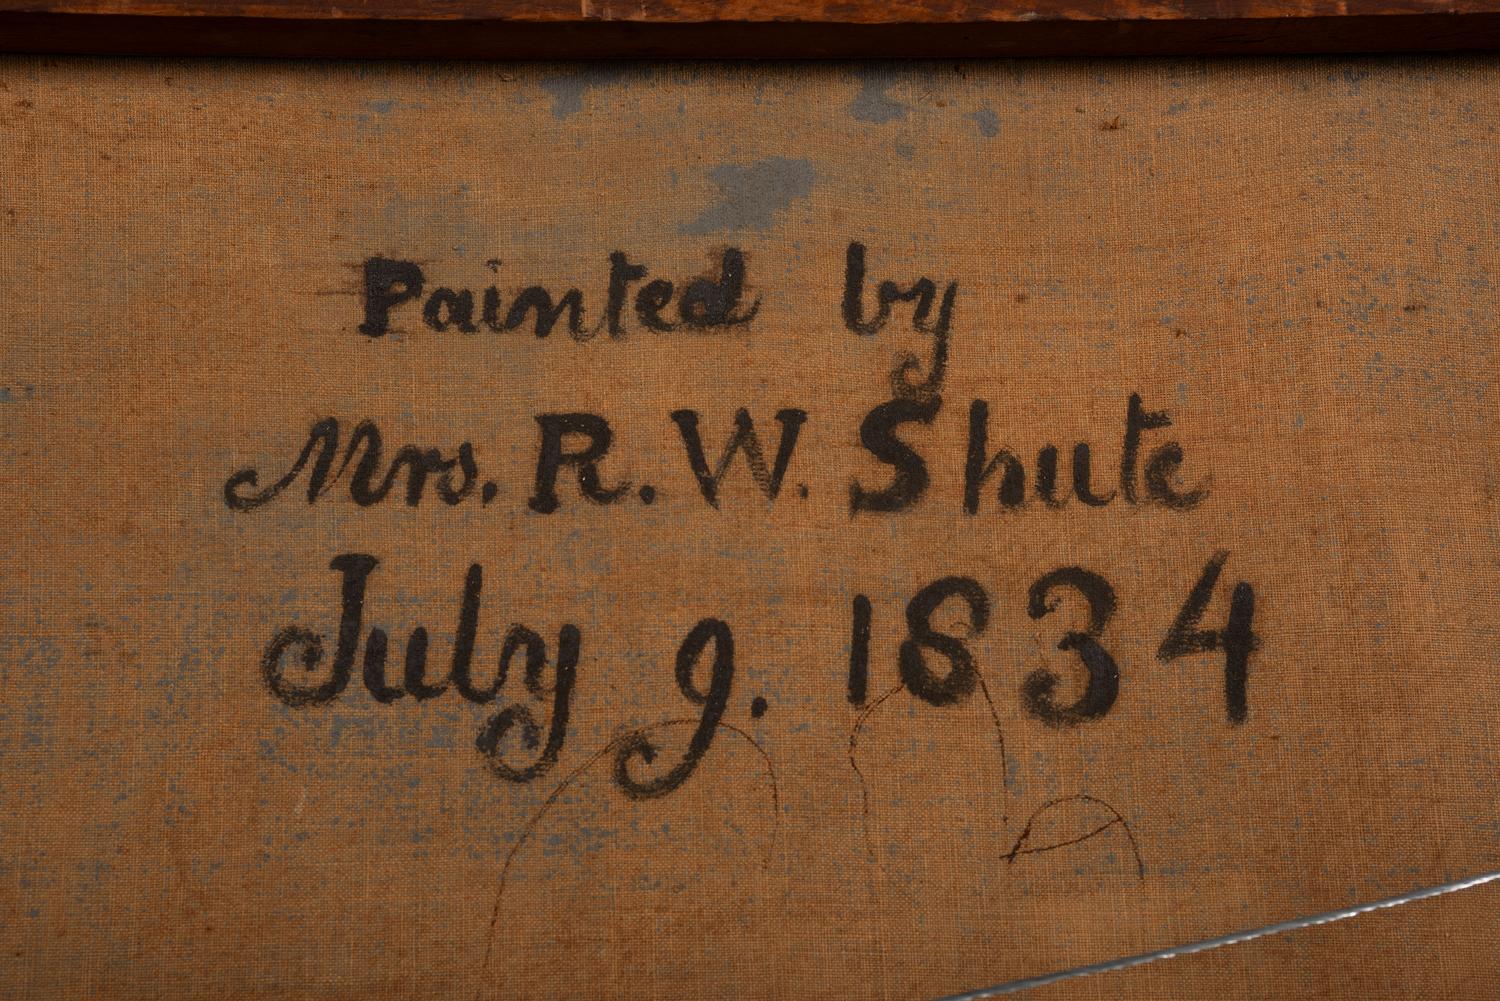 Painted by
Mrs. R. W. Shute
July 9. 1834